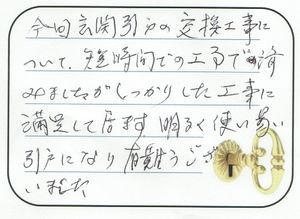 今回玄関引戸の交換工事に
ついて、短時間での工事で済
みましたがしっかりした工事に
満足して居ます 明るく使い易い
引戸になり有難うござ
いました